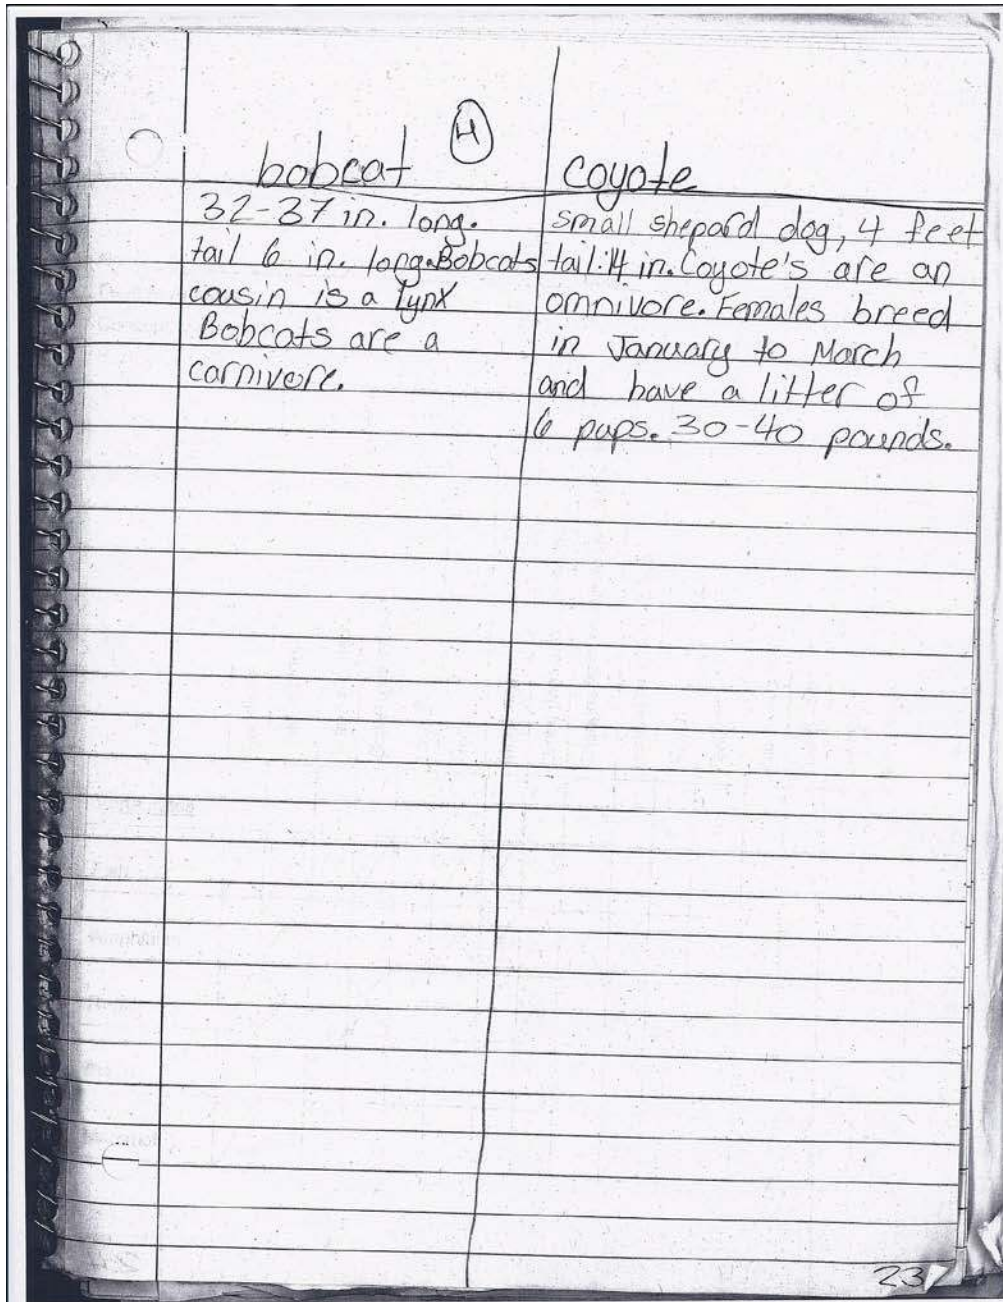 4
bobcat
32-37 in. long.
tail 6 in. long. Bobcats
cousin is a lynx
Bobcats are a
carnivore.
coyote
small shepard dog, 4 feet
tail: 14 in. Coyote's are an
omnivore. Females breed
in January to March
and have a litter of
6 pups. 30-40 pounds.
23